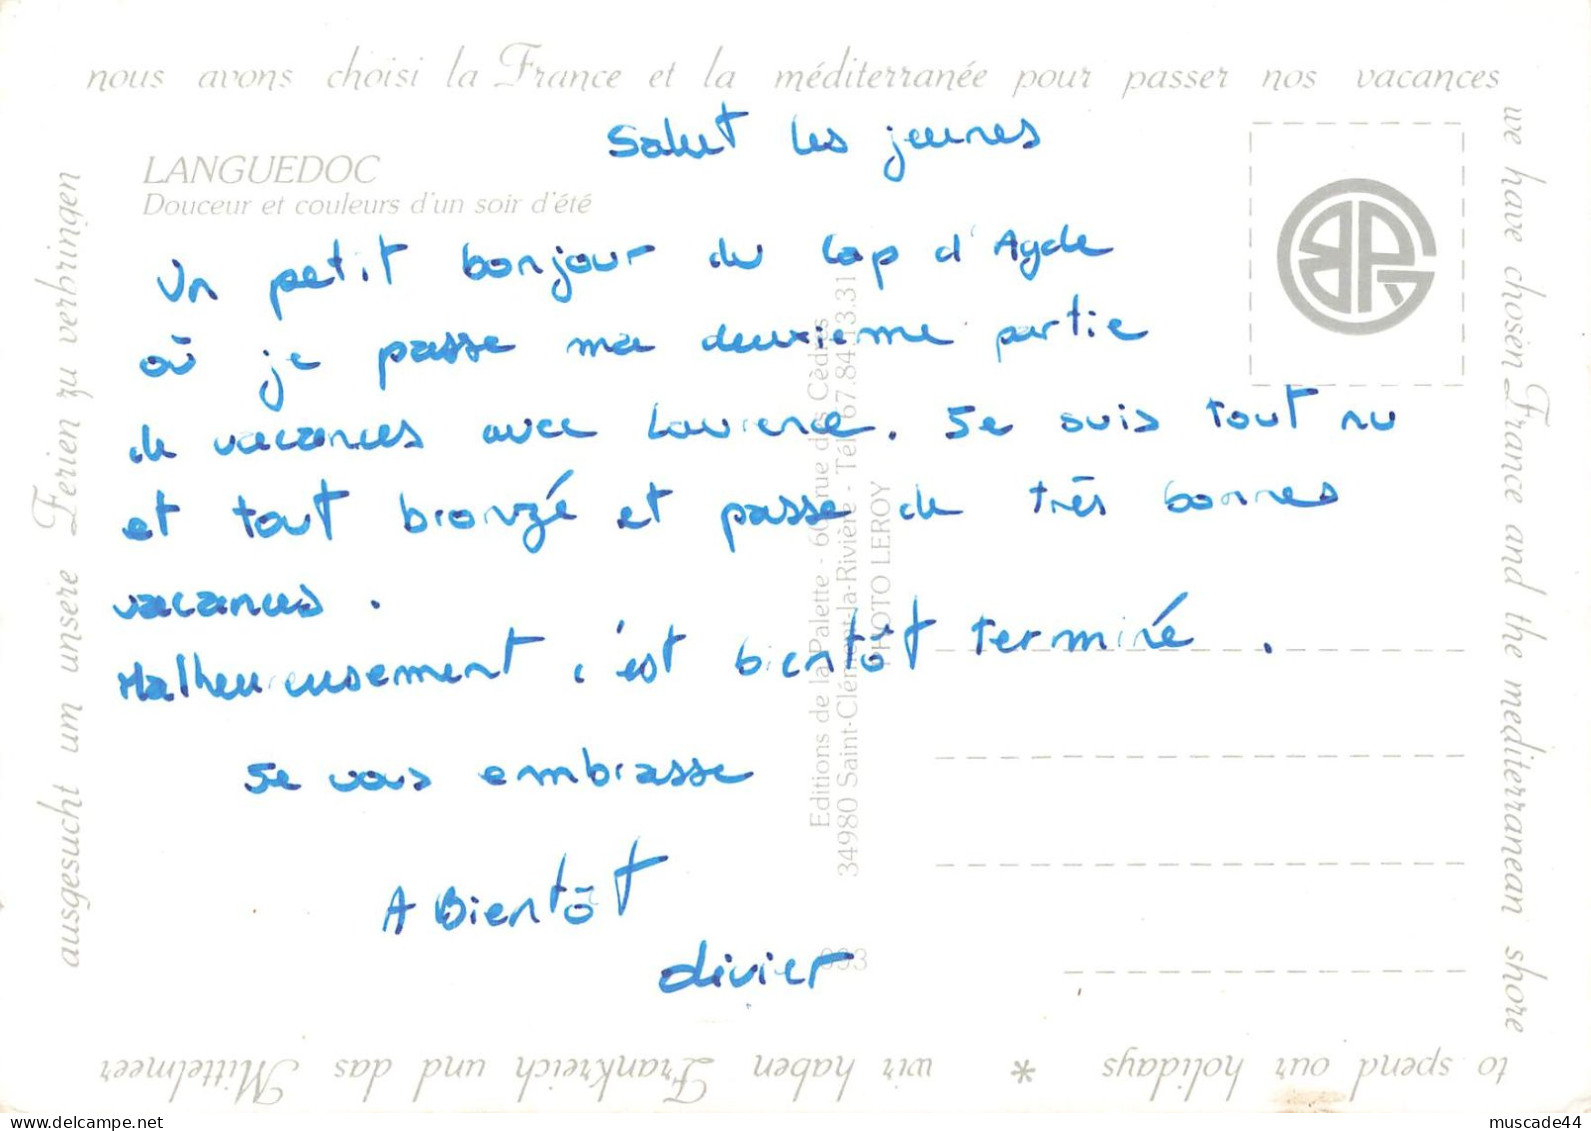 nous avons choisi la France et la méditerranée pour passer nos vacances
we have chosen France and the mediterranean shore
to spend our holidays * wir haben Frankreich und das Mittelmeer
ausgesucht um unsere Ferien zu verbringen
LANGUEDOC
Douceur et couleurs d'un soir d'été
Salut les jeunes
Un petit bonjour du Cap d'Agde
où je passe ma deuxieme partie
de vacances avec Laurence. Je suis tout nu
et tout bronzé et passe de très bonnes
vacances.
Malheureusement c'est bientôt terminé.
Je vous embrasse
A Bientôt
Olivier
Editions de la Palette - 60 rue des Cèdres
34980 Saint-Clément-la-Rivière - Tél. 67.84.13.31
PHOTO LEROY
muscade44